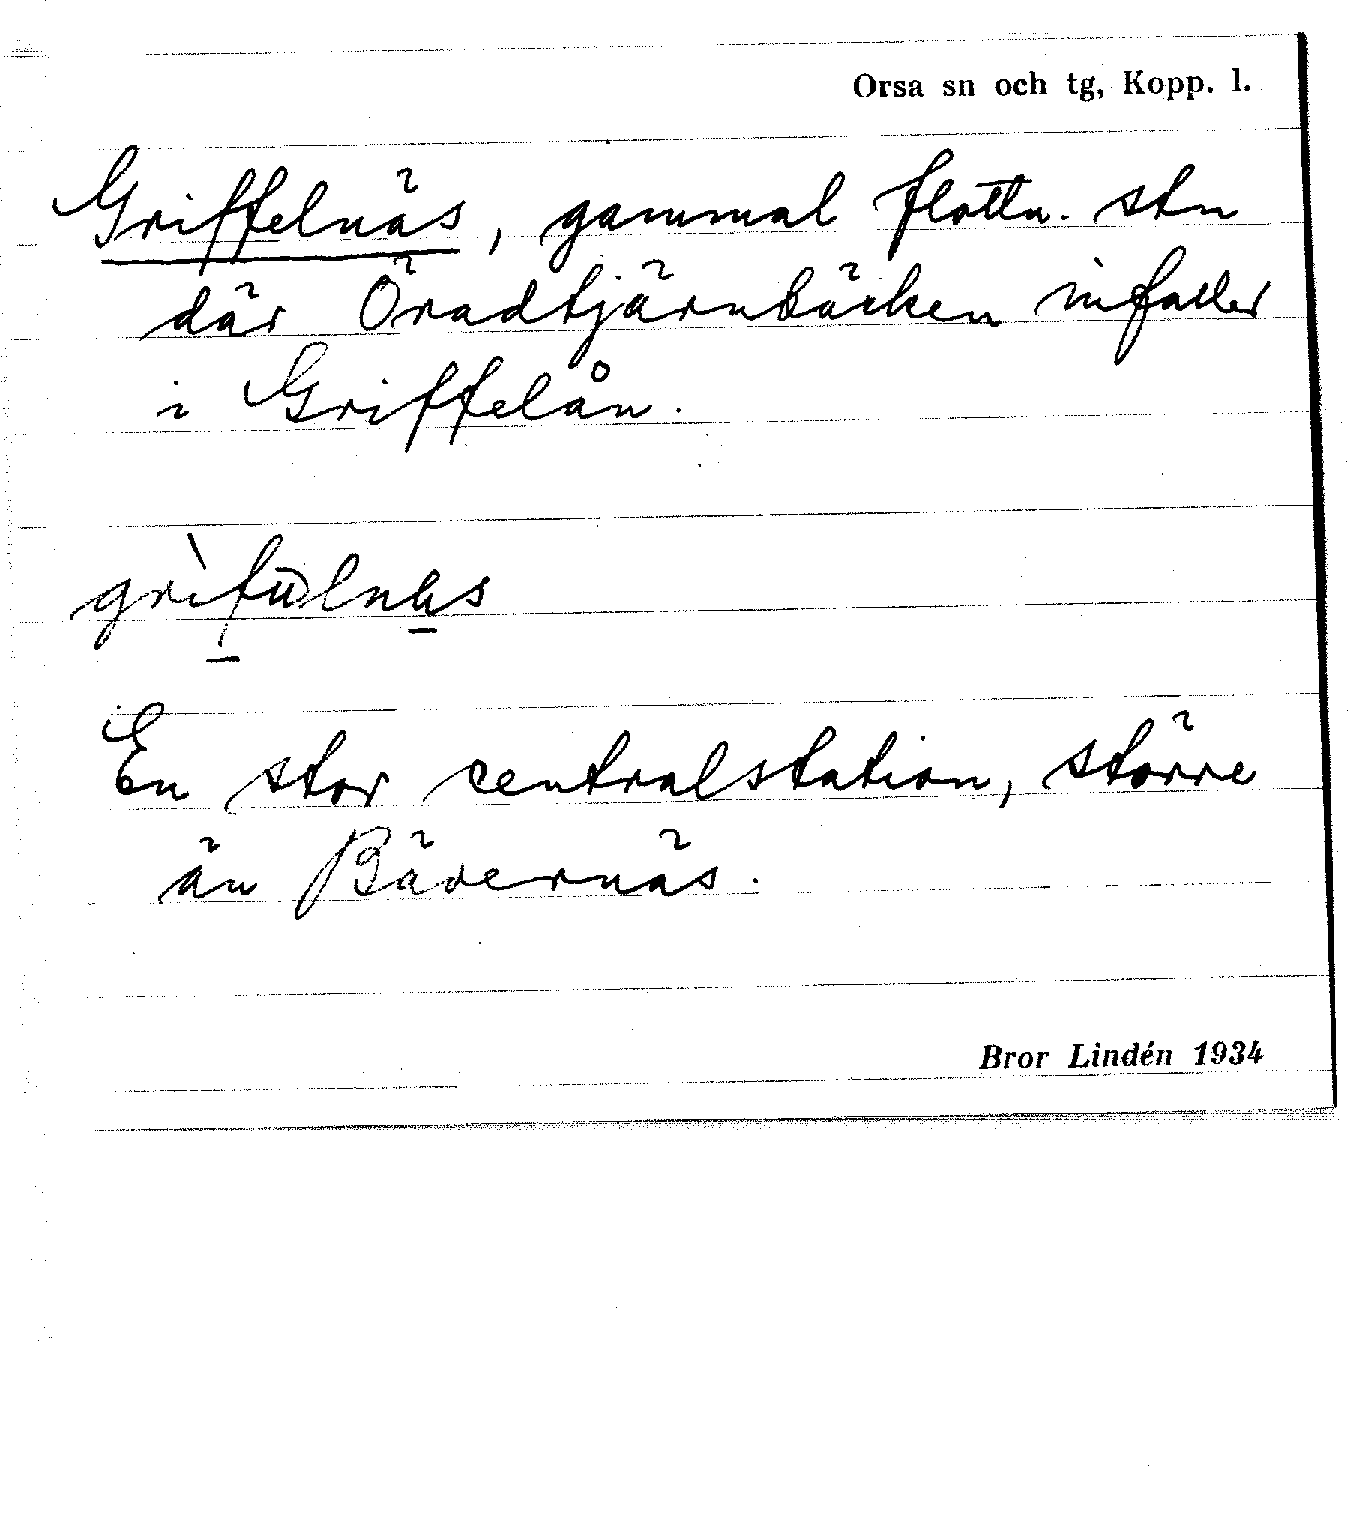 Orsa sn och tg, Kopp. l.
Griffelnäs, gammal flottn. stn
där Öradtjärnbäcken infaller
i Griffelån.
En stor centralstation, större
än Bävernäs.
Bror Lindén 1934